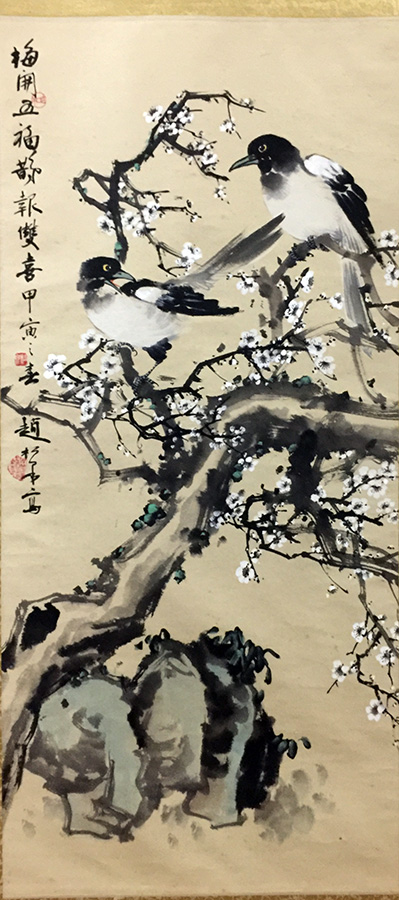 梅開五福鵲報雙喜甲寅之春
趙松泉寫